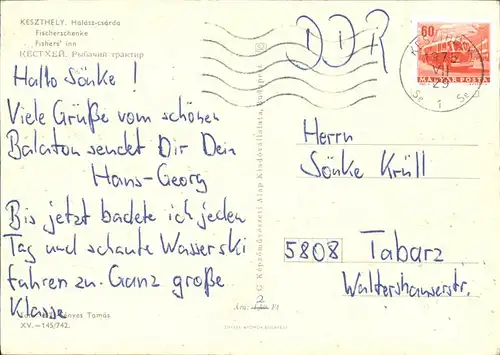 KESZTHELY. Halász-csárda
Fischerschenke
„Fishers" inn
КЕСТХЕЙ. Рыбачий трактир
Hallo Sönke!
Viele Grüße vom schönen
Balaton sendet Dir Dein
Hans-Georg
Bis jetzt badete ich jeden
Tag und schaute Wasserski
fahren zu. Ganz große
Klasse
Tamás
XV.—145/742.
© Képzőművészeti Alap Kiadóvállalata, Budapest
Ára: 1,20 Ft
2
DDR
60
MAGYAR POSTA
KESZTHELY
1975
VII
29
Se
1
Se
Herrn
Sönke Krüll
5808 Tabarz
Waltershauserstr.